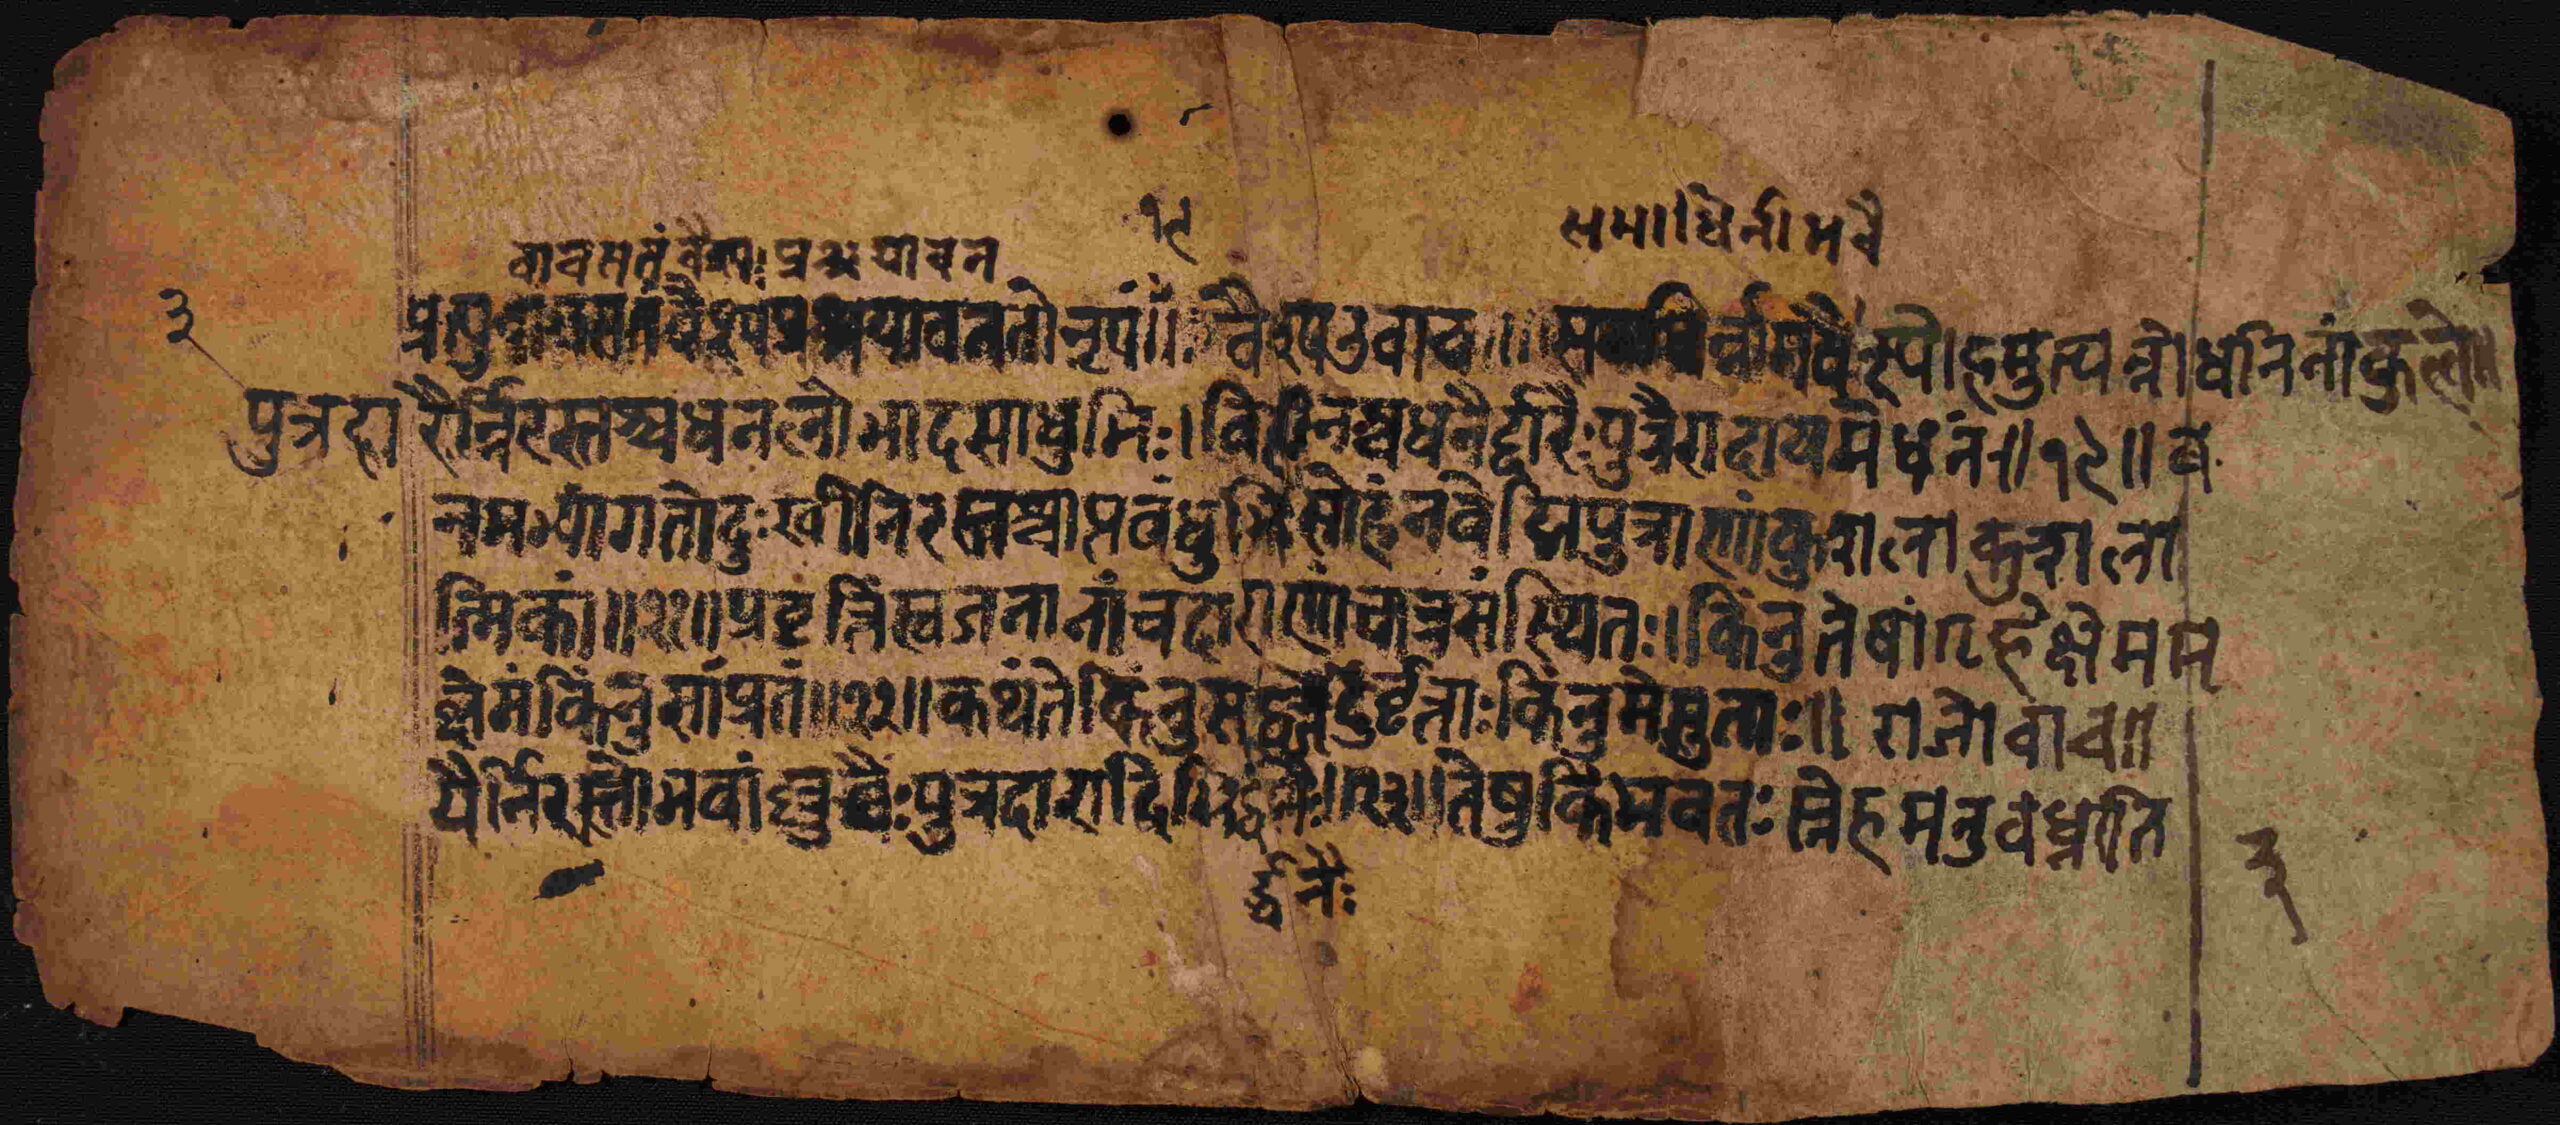 १९
समाधिर्नामवै
वाचसतंवैश्यःप्रश्रयावन
३
प्रत्युवाचसतंवैश्यप्रश्रयावनतोनृपं॥ वैश्यउवाच॥ समाधिर्न्नामवैश्योहमुत्पन्नोधनिनांकुले॥
पुत्रदारैर्न्निरस्तश्चधनलोभादसाधुभिः।विहीनश्चधनैर्द्दारैःपुत्रैरादायमेधनं॥१९॥व
नमभ्यागतोदुःखीनिरस्तश्चाप्तवंधुभिसोहंनवेद्मिपुत्राणांकुशलाकुशला
त्मिकां॥२१॥प्रवृत्तिंस्वजनानांचदाराणांचात्रसंस्थितः।किंनुतेषांगृहेक्षेमम
क्षेमंकिंनुसांप्रतं॥२२॥कथंतेकिंनुसद्वृत्तादुर्वृत्ताःकिंनुमेसुताः॥ राजोवाच॥
यैर्निरस्तोभवांल्लुब्धैःपुत्रदारादिभिर्द्धनैः॥२३॥तेषुकिंभवतःस्नेहमनुवध्नाति
र्द्धनैः
३